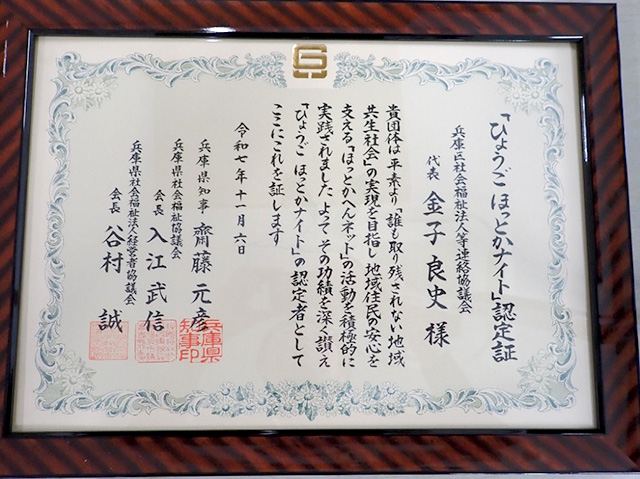 「ひょうご ほっとかナイト」認定証
兵庫区社会福祉法人等連絡協議会
代表 金子 良史 様
貴団体は平素より「誰も取り残されない地域
共生社会」の実現を目指し 地域住民の安心を
支える「ほっとかへんネット」の活動を積極的に
実践されました よって その功績を深く讃え
「ひょうご ほっとかナイト」の認定者として
ここにこれを証します
令和七年十一月六日
兵庫県知事 齋藤 元彦
兵庫県知事印
兵庫県社会福祉協議会
会長 入江 武信
兵庫県社会福祉法人経営者協議会
会長 谷村 誠